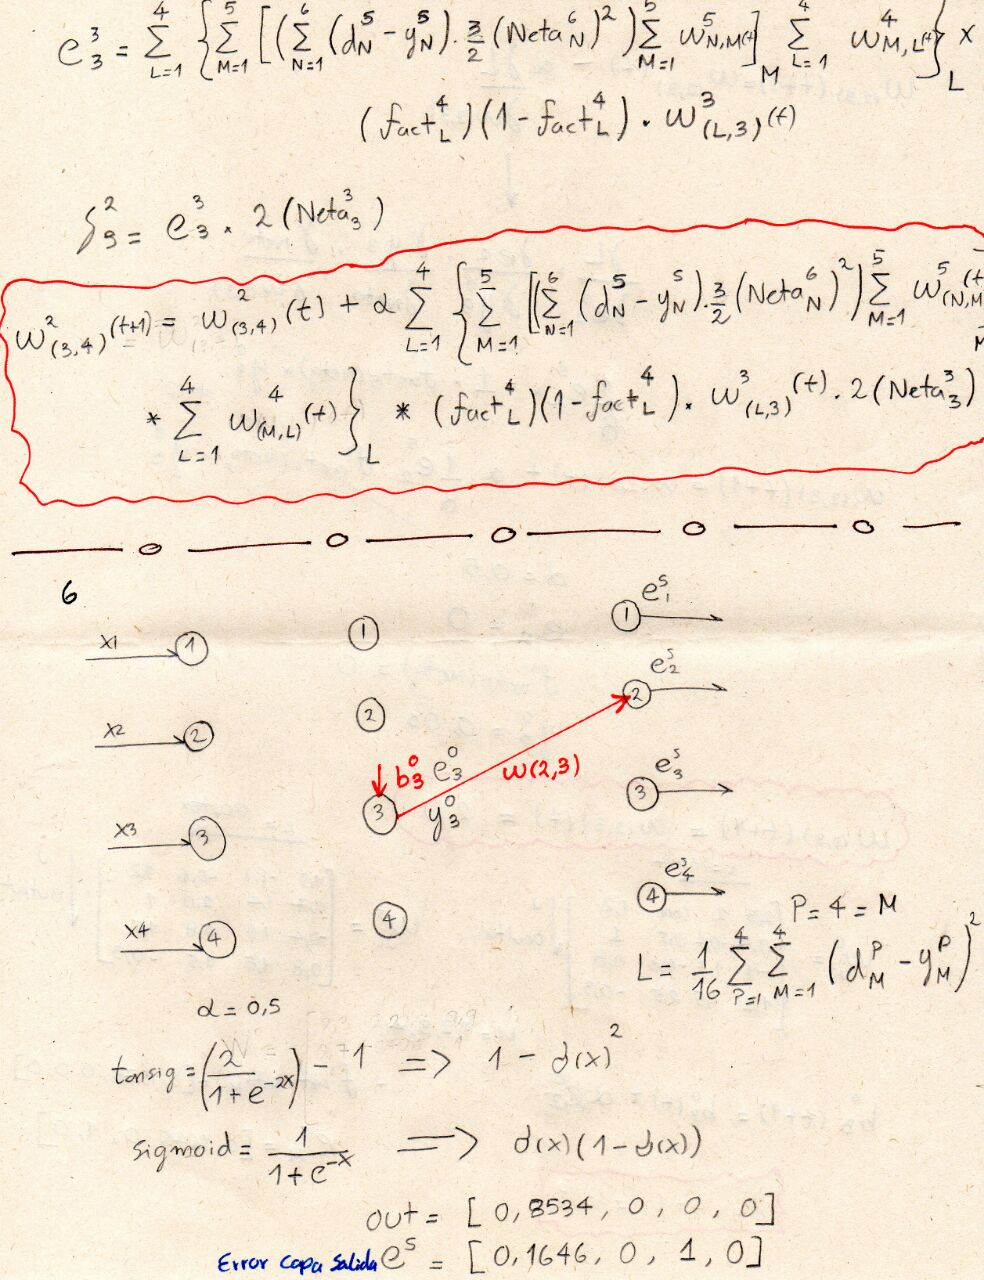 e₃³ = Σ_{L=1}^{4} { Σ_{M=1}^{5} [ ( Σ_{N=1}^{6} (d_N^5 - y_N^5) · 3/2 (Neta_N^6)² ) Σ_{M=1}^{5} w_{N,M(t)}^5 ]_M Σ_{L=1}^{4} w_{M,L(t)}^4 }_L x
(fact_L^4)(1 - fact_L^4) · w_{(L,3)}^3 (t)
δ₃² = e₃³ · 2(Neta₃³)
w_{(3,4)}^2 (t+1) = w_{(3,4)}^2 (t) + α Σ_{L=1}^{4} { Σ_{M=1}^{5} [( Σ_{N=1}^{6} (d_N^5 - y_N^5) · 3/2 (Neta_N^6)² ) Σ_{M=1}^{5} w_{(N,M}^5 (t
* Σ_{L=1}^{4} w_{(M,L)}^4 (t) }_L * (fact_L^4)(1 - fact_L^4) · w_{(L,3)}^3 (t) · 2(Neta₃³)
6
x1 1 1 1 e₁^s
x2 2 2 2 e₂^s
b₃^0 e₃^0 w(2,3)
x3 3 3 y₃^0 3 e₃^s
x4 4 4 4 e₄^s
P = 4 = M
L = 1/16 Σ_{P=1}^{4} Σ_{M=1}^{4} (d_M^P - y_M^P)²
α = 0,5
tansig = (2/(1+e^{-2x})) - 1 => 1 - f(x)²
sigmoid = 1/(1+e^{-x}) => f(x)(1 - f(x))
out = [0,8534, 0, 0, 0]
Error capa salida e^s = [0,1646, 0, 1, 0]